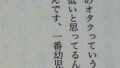 のオタクっていう
低いと思ってるん
んです、一番幼児